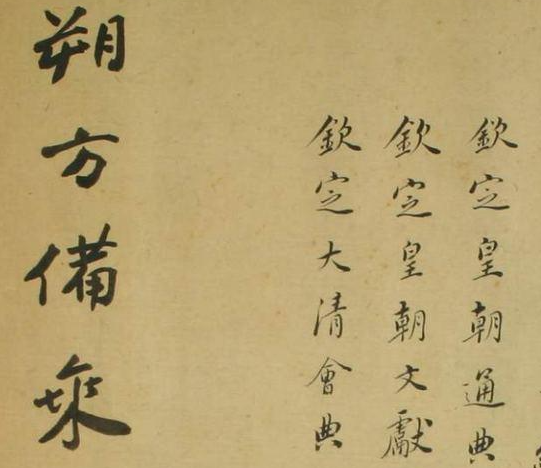 欽定皇朝通典
欽定皇朝文獻
欽定大清會典
朔方備乘